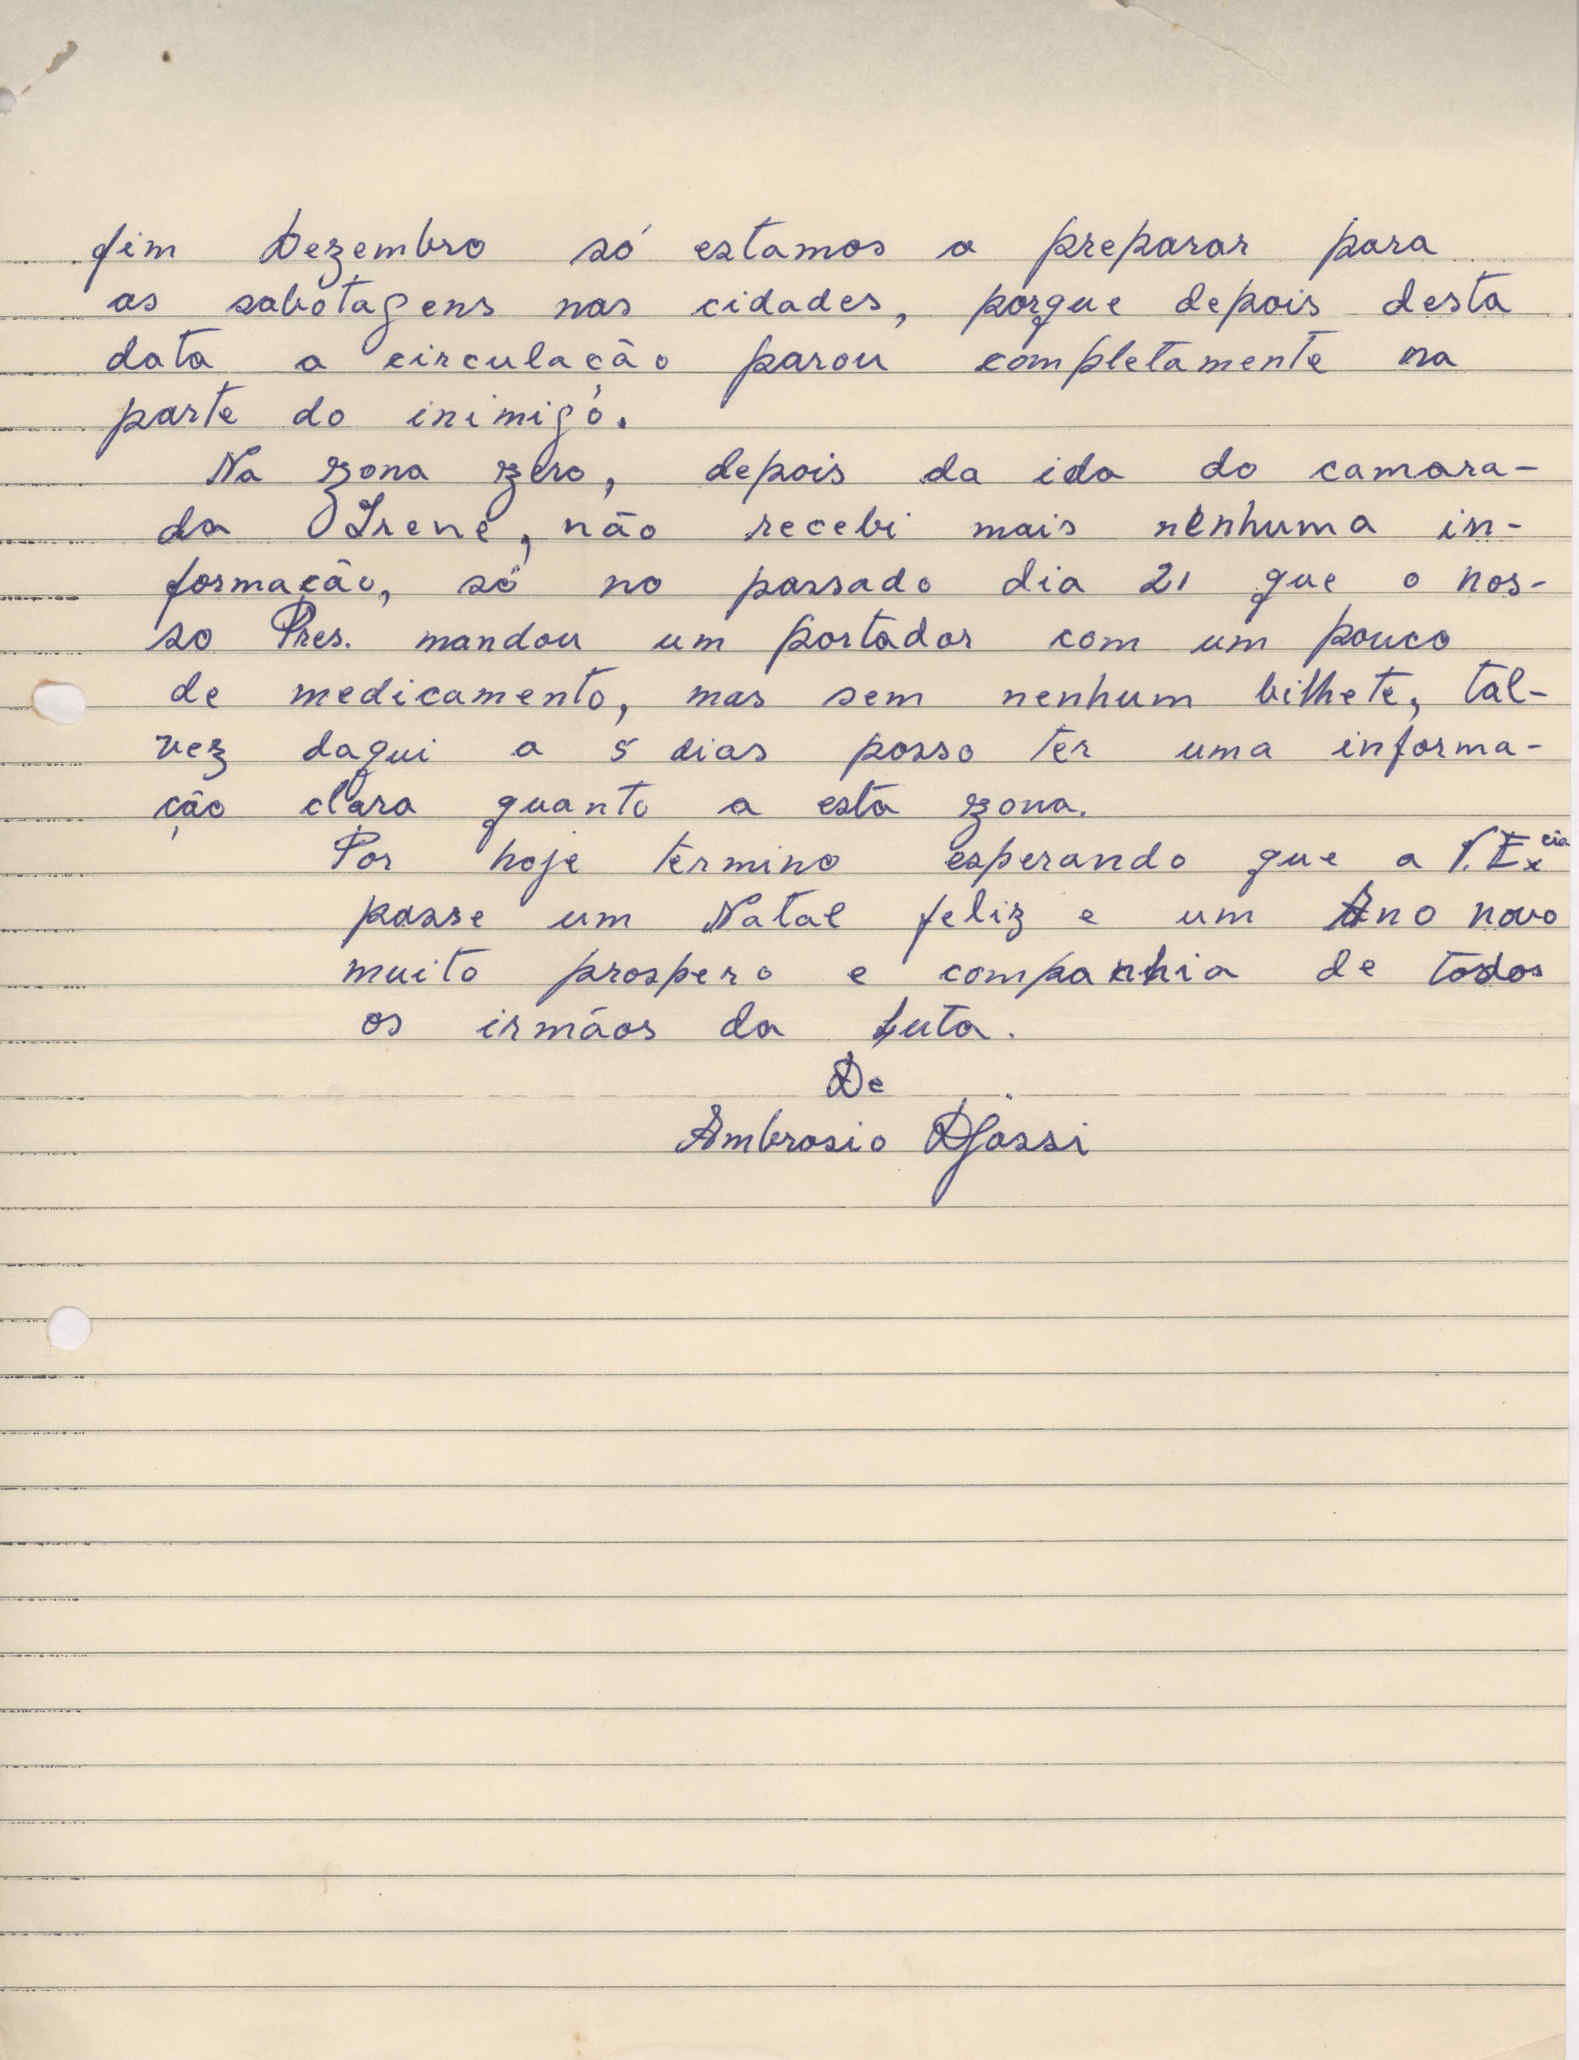 fim Dezembro só estamos a preparar para
as sabotagens nas cidades, porque depois desta
data a circulação parou completamente na
parte do inimigo.
Na zona zero, depois da ida do camara-
da Irene, não recebi mais nenhuma in-
formação, só no passado dia 21 que o nos-
so Pres. mandou um portador com um pouco
de medicamento, mas sem nenhum bilhete, tal-
vez daqui a 5 dias posso ter uma informa-
ção clara quanto a esta zona.
Por hoje termino esperando que a V. Excia
passe um Natal feliz e um Ano novo
muito prospero e companhia de todos
os irmãos da Luta.
De
Ambrosio Djassi